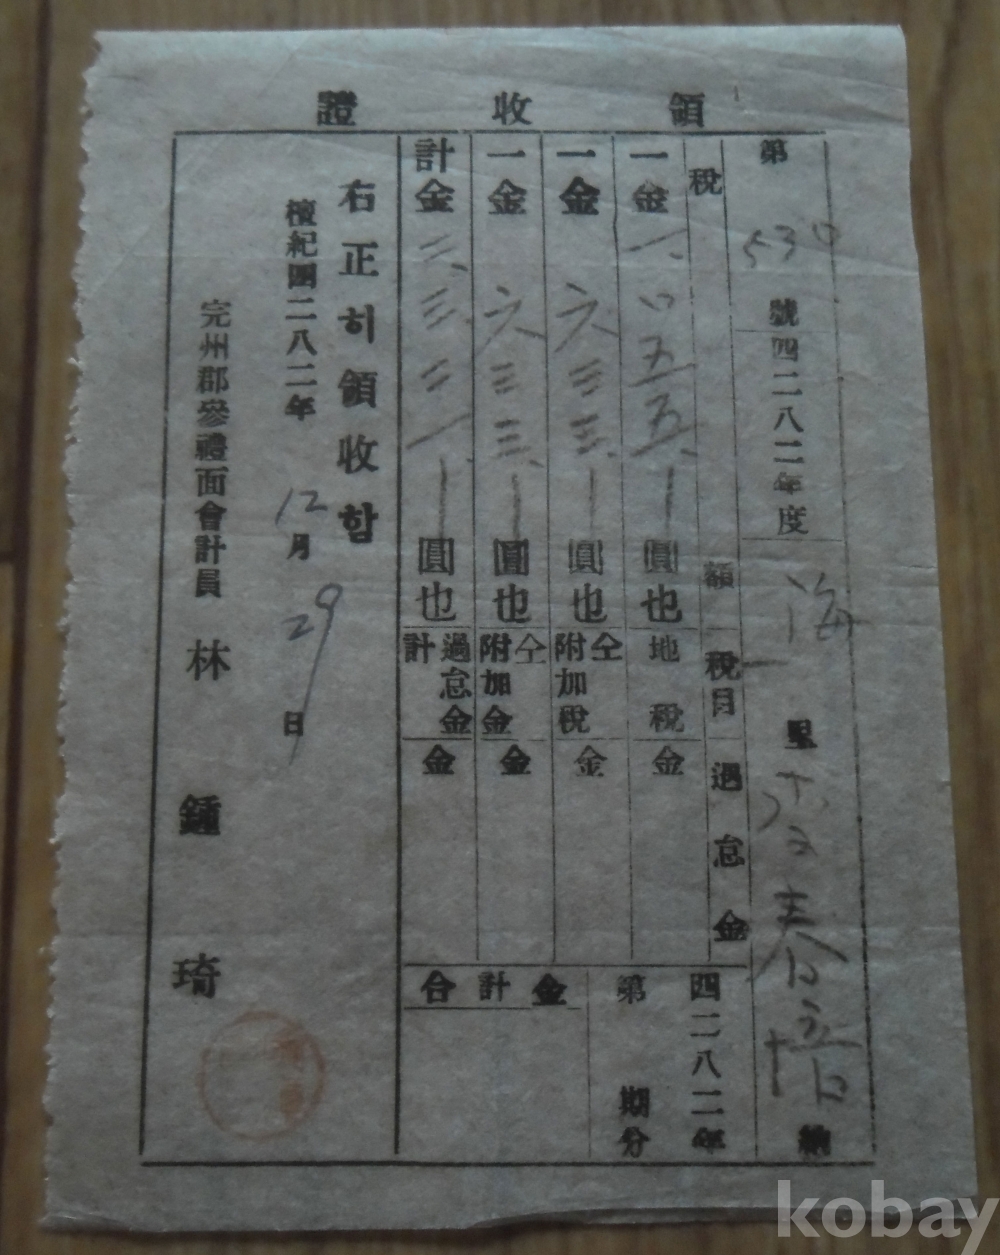 領收證
第530號 四二八二年度 海 里 春培 納
稅額 稅目 過怠金 四二八二年
一金一0五五 圓也 地稅 金 第 期分
一金六三三 圓也 仝附加稅 金
一金六三三 圓也 仝附加金 金 合計金
計金二、三二一 圓也 過怠金計 金
右正히領收함
檀紀四二八二年12月29日
完州郡參禮面會計員 林鍾琦
kobay